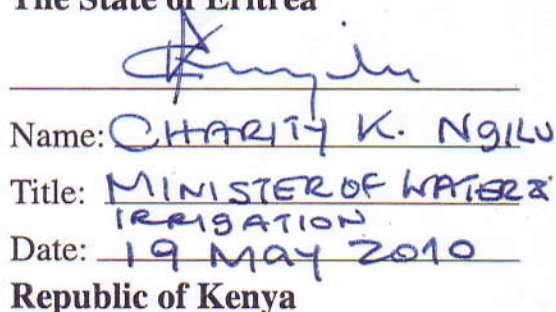 The State of Eritrea
Name: CHARITY K. NGILU
Title: MINISTER OF WATER &
IRRIGATION
Date: 19 MAY 2010
Republic of Kenya